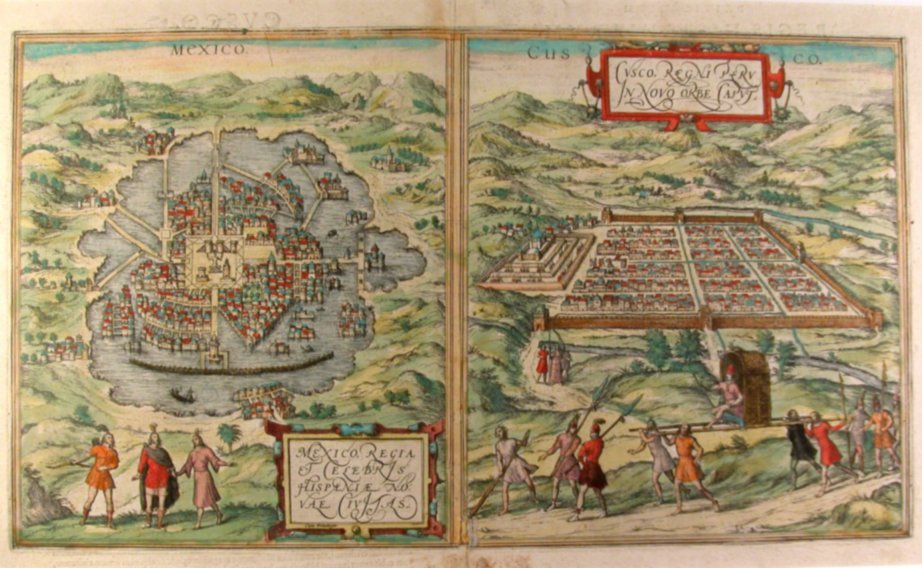 MEXICO.
CUSCO.
CVSCO, REGNI PERV
IN NOVO ORBE CAPVT.
MEXICO, REGIA
ET CELEBRIS
HISPANIÆ NO
VAE CIVITAS.